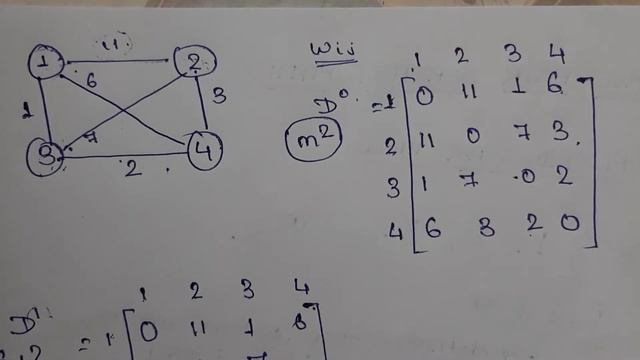 11
1 2
6
1 3
7
3 4
2
Wij
1 2 3 4
D⁰ = 1 0 11 1 6
m²
2 11 0 7 3
3 1 7 0 2
4 6 3 2 0
1 2 3 4
D¹ = 1 0 11 1 6